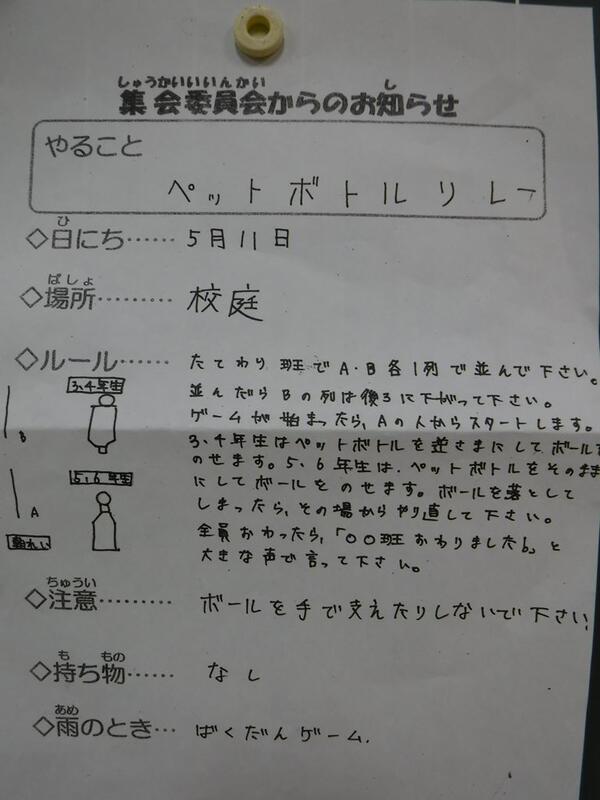 しゅうかいいいんかい し
集会委員会からのお知らせ
やること
ペットボトルリレー
ひ
◇日にち…… 5月11日
ばしょ
◇場所……… 校庭
◇ルール…… たてわり班でA・B各1列で並んで下さい。
並んだらBの列は後ろに下がって下さい。
ゲームが始まったら、Aの人からスタートします。
3、4年生はペットボトルを逆さまにしてボールを
のせます。5、6年生は、ペットボトルをそのまま
にしてボールをのせます。ボールを落として
しまったら、その場からやり直して下さい。
全員おわったら、「〇〇班おわりました。」と
大きな声で言って下さい。
3、4年生
B
5、6年生
A
ちゅうい
◇注意……… ボールを手で支えたりしないで下さい
も もの
◇持ち物…… なし
あめ
◇雨のとき… ばくだんゲーム.